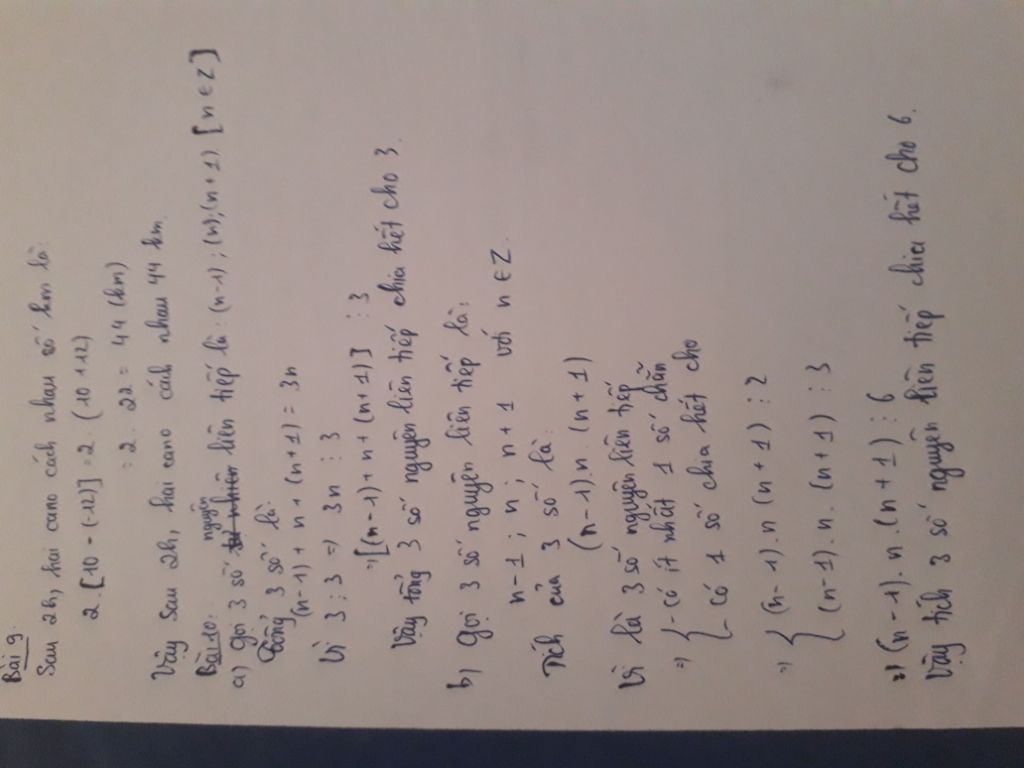 Bài 9:
Sau 2h, hai cano cách nhau số km là:
2.[10 - (-12)] = 2. (10 + 12)
= 2. 22 = 44 (km)
Vậy sau 2h, hai cano cách nhau 44 km.
Bài 10:
a) Gọi 3 số nguyên liên tiếp là: (n-1); (n); (n+1) [n ∈ Z]
Tổng 3 số là:
(n-1) + n + (n+1) = 3n
Vì 3 ⋮ 3 => 3n ⋮ 3
=> [(n-1) + n + (n+1)] ⋮ 3
Vậy tổng 3 số nguyên liên tiếp chia hết cho 3.
b) Gọi 3 số nguyên liên tiếp là:
n-1; n; n+1 với n ∈ Z.
Tích của 3 số là:
(n-1).n.(n+1)
Vì là 3 số nguyên liên tiếp
=> { - có ít nhất 1 số chẵn
- có 1 số chia hết cho
=> { (n-1).n (n+1) ⋮ 2
(n-1).n.(n+1) ⋮ 3
=> (n-1).n.(n+1) ⋮ 6
Vậy tích 3 số nguyên liên tiếp chia hết cho 6.